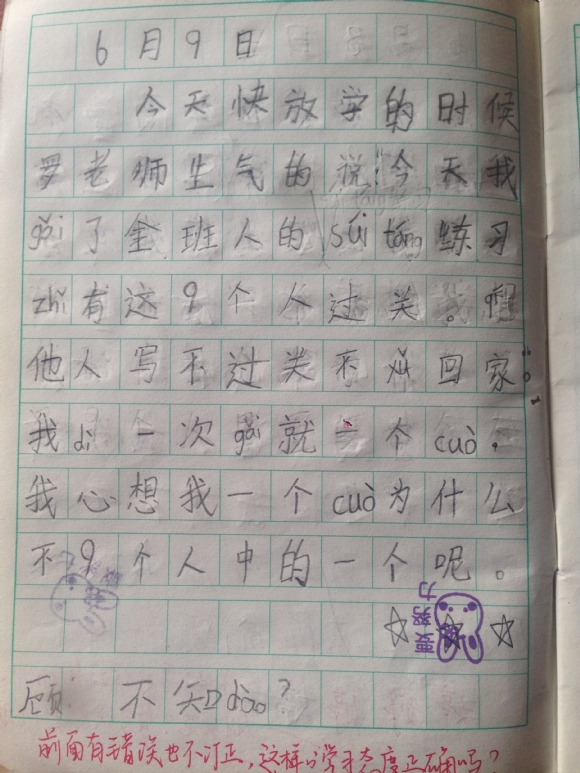 6月9日
今天快放学的时候
罗老师生气的说:“今天我
gǎi了全班人的suí táng练习
zhǐ有这9个人过关。qí
他人写不过关不准回家”。
我dì一次gǎi就一个cuò,
我心想我一个cuò为什么
不9个人中的一个呢。
要努力
顾 不知dào?
前面有错误也不订正,这样的学习态度正确吗?